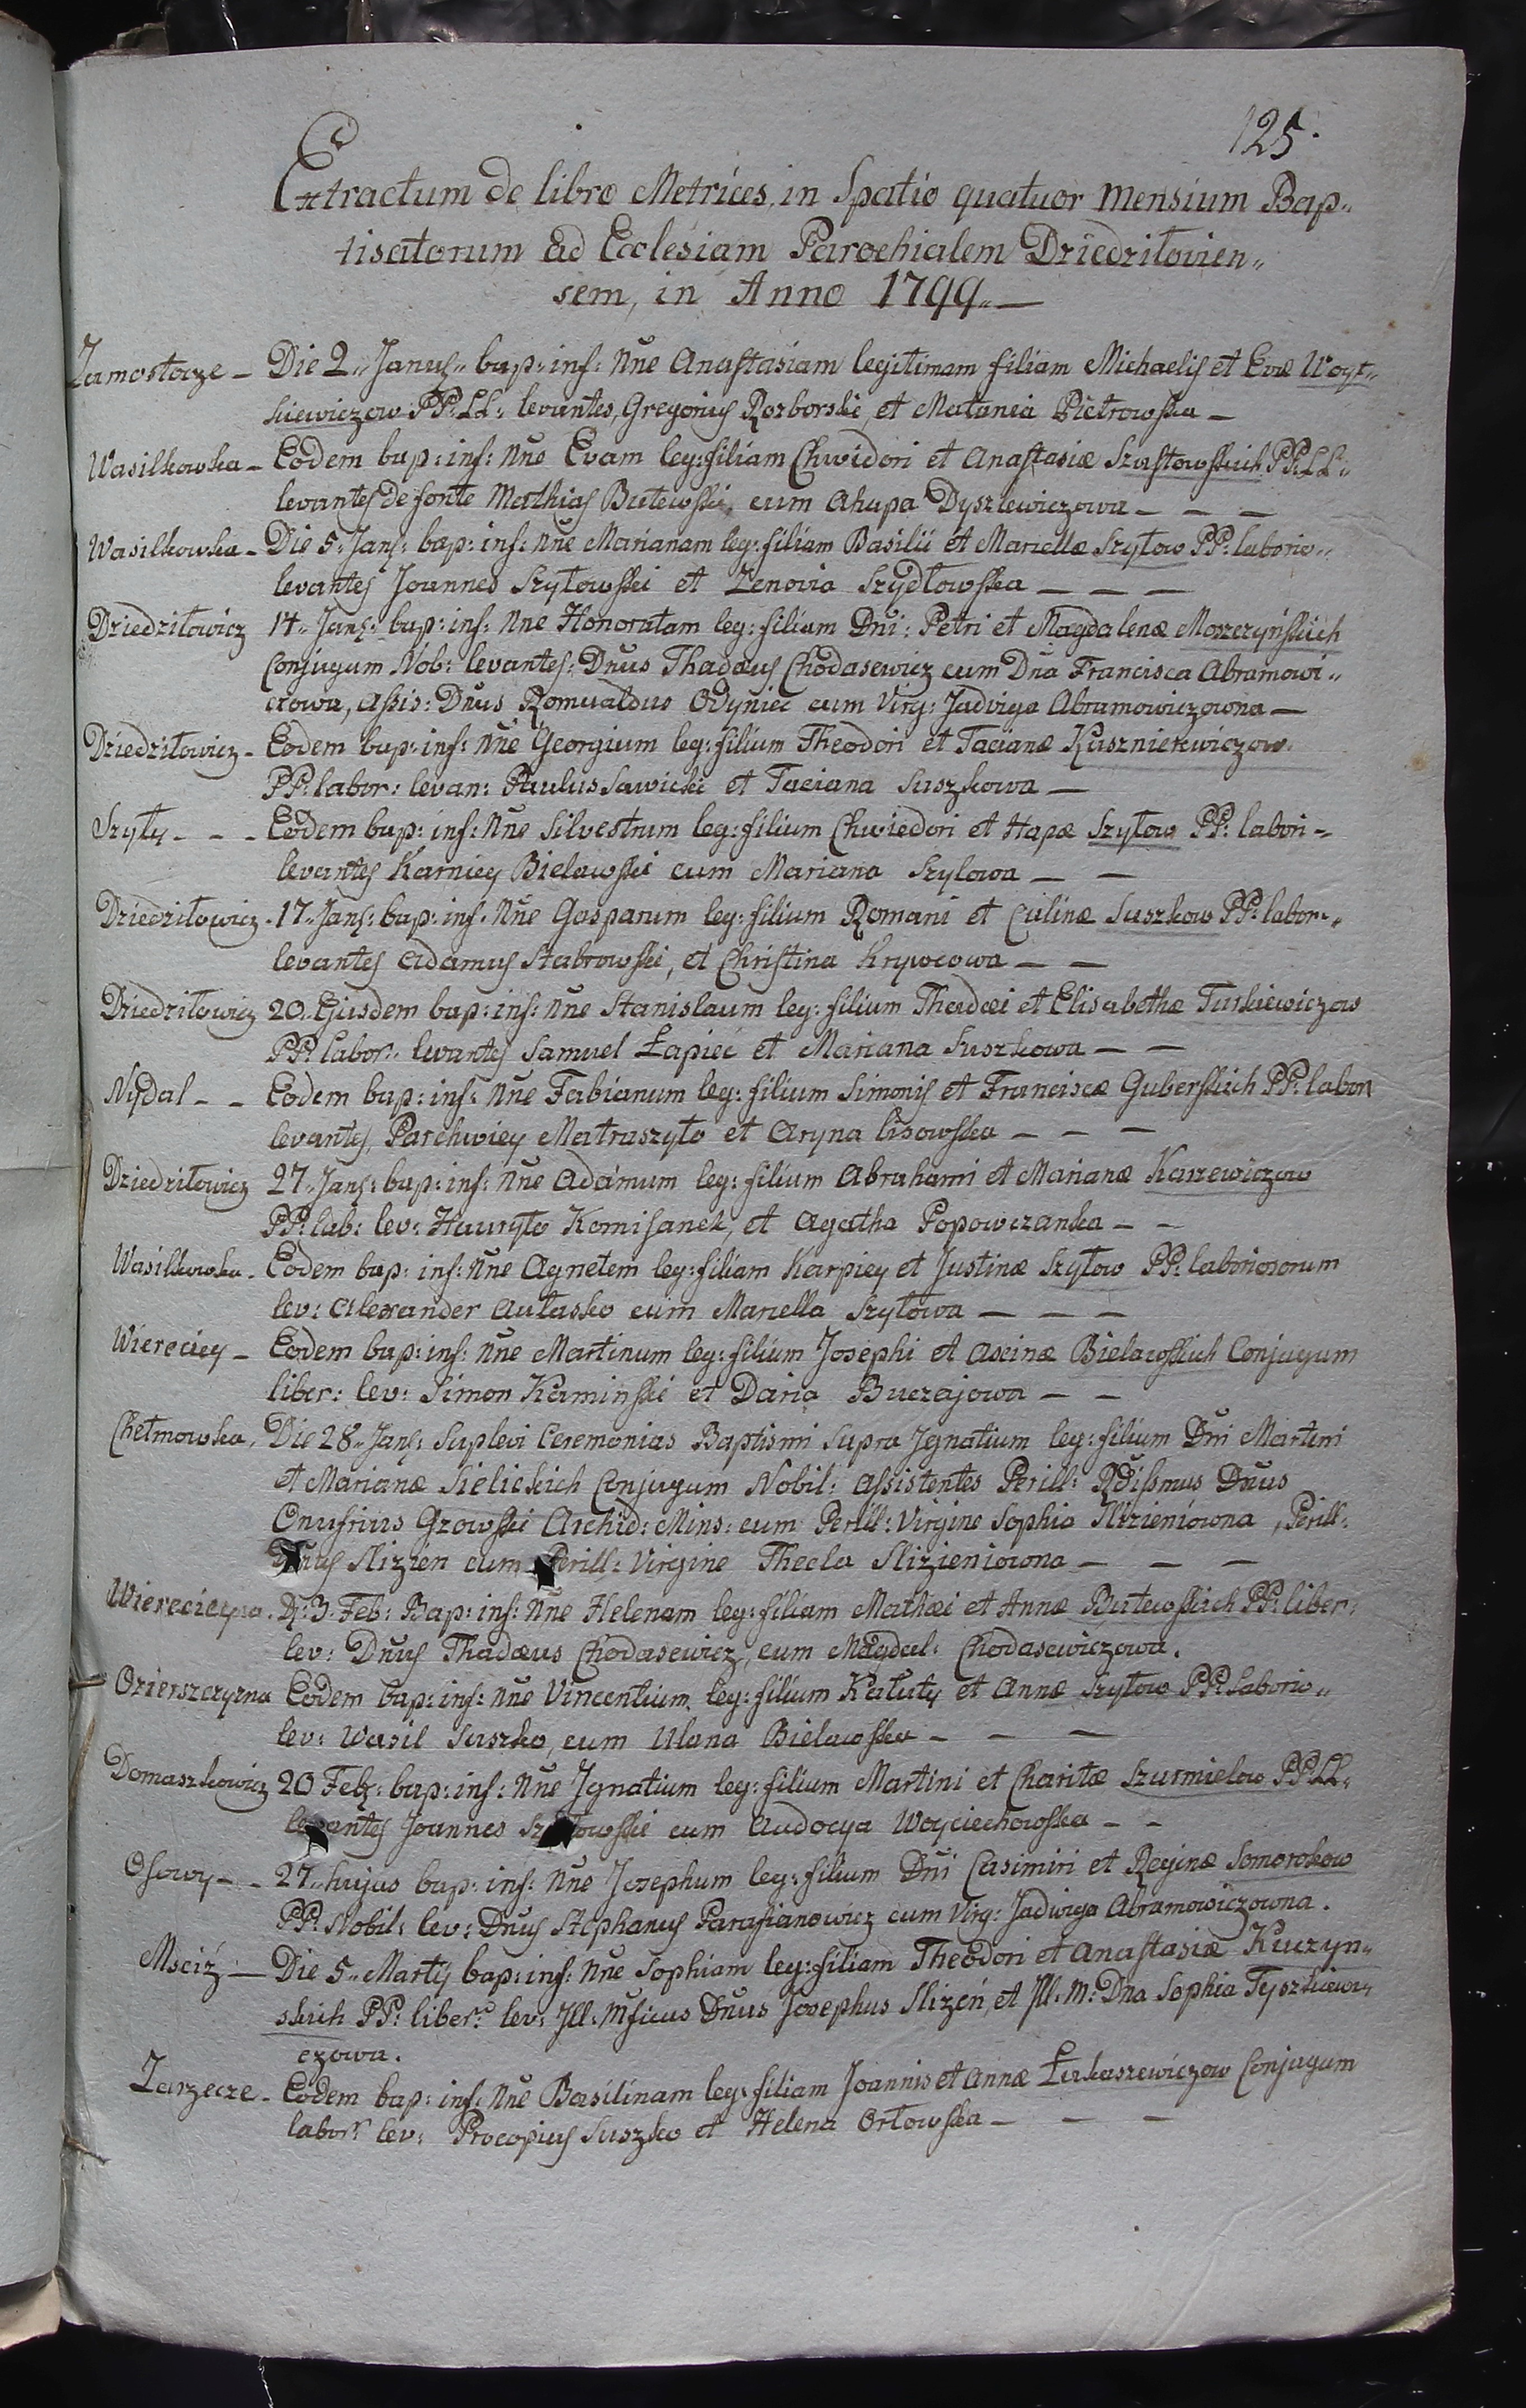 125.
Extractum de libro Metrices, in Spatio quatuor mensium Bap„
tisatorum ad Ecclesiam Parochialem Dziedziłovien„
sem, in Anno 1799.„ —
Zamostoze – Die 2„ Janus„ bap: inf: Nne Anastasiam legitimam filiam Michaelis et Evæ Woyt„
kiewiczow PP: LL: levantes, Gregorius Rozborski, et Matanea Pietrowska –
Wasilkowka – Eodem bap: inf: Nne Evam leg: filiam Chwedori et Anastasiæ Szustowskich PP: LL:
levantes de fonte Mathias Butewski, cum Ahapa Dyszlewiczowa – – –
Wasilkowka – Die 5„ Jans: bap: inf: Nne Marianam leg: filiam Basilii et Mariellæ Szyłow PP: laborio„
levantes Joannes Szyłowski et Zenovia Szydłowska – – –
Dziedziłowicz 14„ Jans: bap: inf: Nne Honoratam leg: filiam Dni: Petri et Magdalenæ Moszczyńskich
Conjugum Nob: levantes: Dnus Thadæus Chodasewicz cum Dna Francisca Abramowi„
czowa, Assis: Dnus Romualdus Odyniec cum Virg: Jadviga Abramowiczowna –
Dziedziłowicz – Eodem bap: inf: Nne Georgium leg: filium Theodori et Tacianæ Kusznierewiczow
PP: labor: levan: Paulus Sawicki et Taciana Suszkowa –
Szyły – – – Eodem bap: inf: Nne Silvestrum leg: filium Chwiedori et Hapæ Szyłow PP: labori–
levantes Karniey Bielawski cum Mariana Szyłowa – –
Dziedziłowicz – 17„ Jans: bap: inf: Nne Gasparum leg: filium Romani et Culinæ Suszkow PP: labor„
levantes Adamus Stabrowski, et Christina Krywcowa – –
Dziedziłowicz 20„ Ejusdem bap: inf: Nne Stanislaum leg: filium Thadæi et Elisabethæ Turkiewiczow
PP: labor„ levantes Samuel Łapieć et Mariana Suszkowa – –
Nydal – – Eodem bap: inf: Nne Fabianum leg: filium Simonis et Franciscæ Guberskich PP: labor
levantes, Parchwiey Matraszyło et Aryna Lisowska – – –
Dziedziłowicz 27„ Jans: bap: inf: Nne Adamum leg: filium Abrahami et Marianæ Karzewiczow
PP: lab: lev: Hauryło Komisarek, et Agatha Popowczanka – –
Wasilkowka – Eodem bap: inf: Nne Agnetem leg: filiam Karpiey et Justinæ Szyłow PP: laboriosorum
lev: Alexander Autasko cum Mariella Szyłowa – – –
Wiereciey – Eodem bap: inf: Nne Martinum leg: filium Josephi et Axinæ Bielawskich Conjugum
liber: lev: Simon Kaminski et Daria Buczajowa – –
Chełmowka, Die 28„ Jans: Suplevi Ceremonias Baptismi supra Jgnatium leg: filium Dni Martini
et Marianæ Sielickich Conjugum Nobil: Assistentes Perill: Rdissmus Dnus
Onufrius Gzowski Archid: Mins: cum Perill: Virgine Sophia Slizieniowna, Perill:
Dnus Slizien cum Perill: Virgine Thecla Slizieniowna – – –
D: 3. Feb: Bap: inf: Nne Helenam leg: filiam Mathæi et Annæ Butewskich PP: liber:
lev: Dnus Thadæus Chodasewicz, cum Magdal: Chodasewiczowa.
Ozierszczyzna Eodem bap: inf: Nne Vincentium leg: filium Kałuty et Annæ Szyłow PP: Laborio„
lev: Wasil Suszko, cum Ulana Bielawska – – –
Domaszkowicz 20 Feb: bap: inf: Nne Jgnatium leg: filium Martini et Charitæ Szurmielow PP: LL:
levantes Joannes Szyłowski cum Audocya Woyciechowska – –
Osowy – – 27„ hujus bap: inf: Nne Josephum leg: filium Dni Casimiri et Reginæ Somorokow
PP: Nobil: lev: Dnus Stephanus Parafianowicz cum Virg: Jadwiga Abramowiczowna.
Msciż – Die 5„ Martij bap: inf: Nne Sophiam leg: filiam Theodori et Anastasiæ Kuczyn„
skich PP: liber: lev: Jll: Mficus Dnus Josephus Slizeń, et Jll: M: Dna Sophia Tyszkiewi„
czowa.
Zarzecze – Eodem bap: inf: Nne Basilinam leg: filiam Joannis et Annæ Łukaszewiczow Conjugum
labor: lev: Procopius Suszko et Helena Orłowska – – –